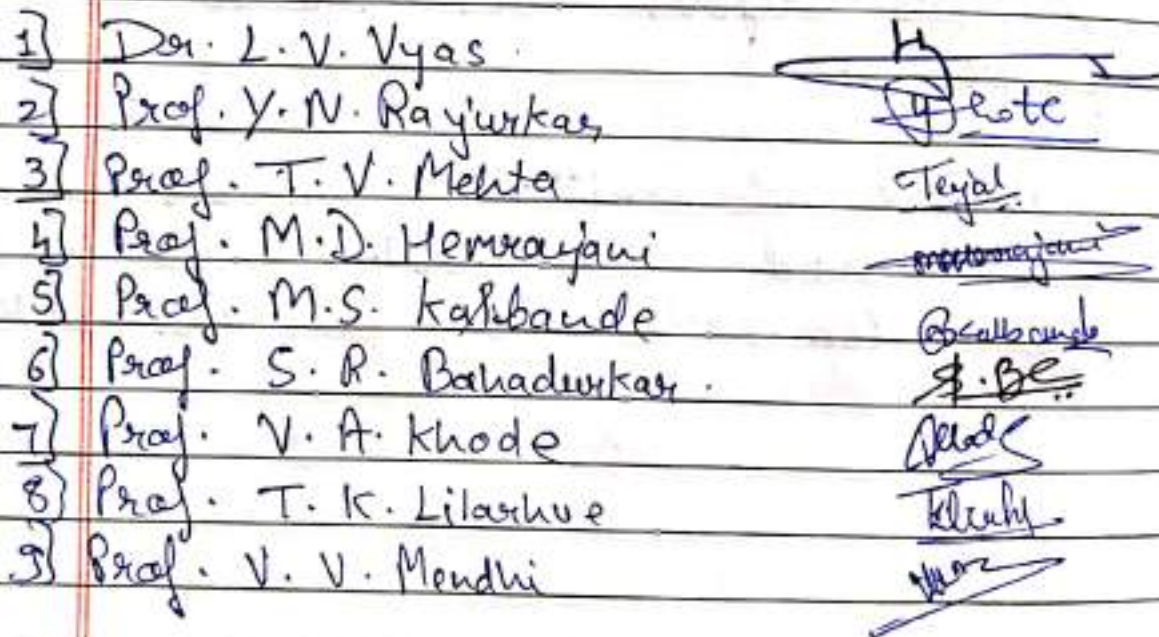 1] Dr. L. V. Vyas.
2] Prof. Y. N. Rajurkar
3] Prof. T. V. Mehta Tejal
4] Prof. M. D. Hemrajani
5] Prof. M.S. Kalbande
6] Prof. S. R. Bahadurkar.
7] Prof. V. A. Khode
8] Prof. T. K. Lilarhve
9] Prof. V. V. Mendhi